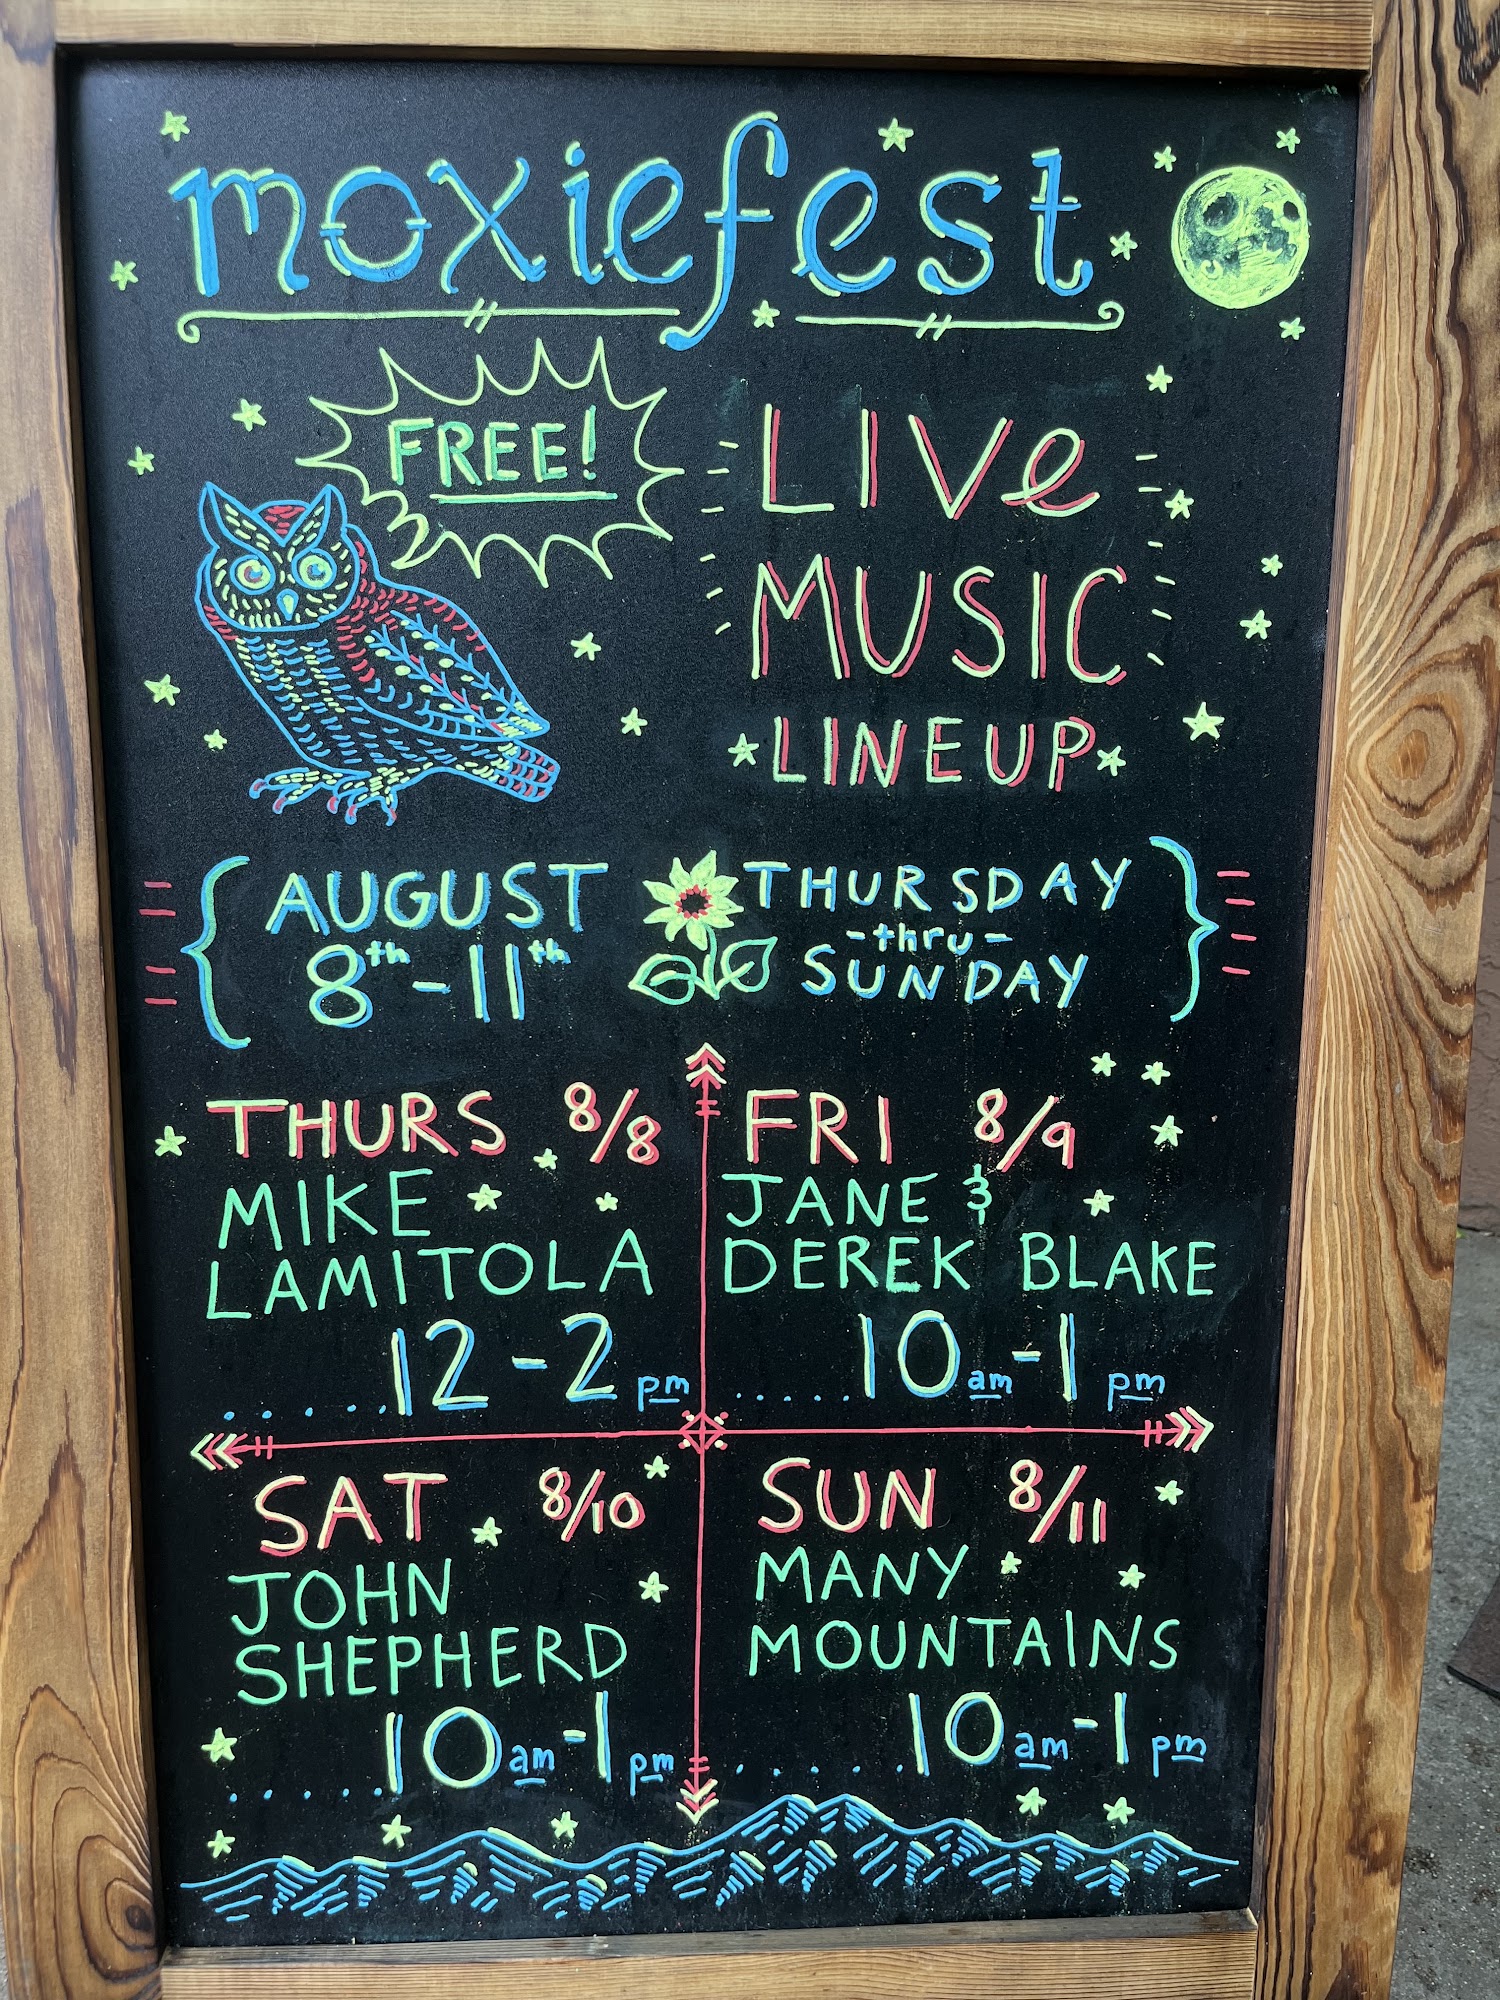 moxiefest
FREE!
LIVe
MUSIC
LINEUP
AUGUST
8th-11th
THURSDAY
-thru-
SUNDAY
THURS 8/8
MIKE
LAMITOLA
......12-2 pm
FRI 8/9
JANE &
DEREK BLAKE
.....10am-1pm
SAT 8/10
JOHN
SHEPHERD
......10am-1pm
SUN 8/11
MANY
MOUNTAINS
......10am-1pm